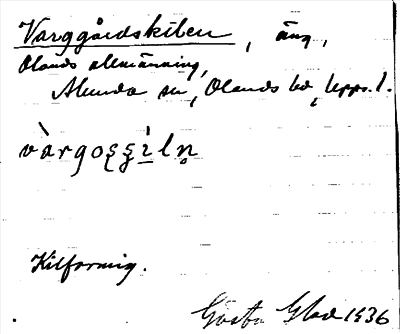 Varggårdskilen, äng,
Olands allmänning,
Alunda sn, Olands hd, Upps. l.
vàrgoṣṣìln̥
Kilformig.
Gösta Glad 1936